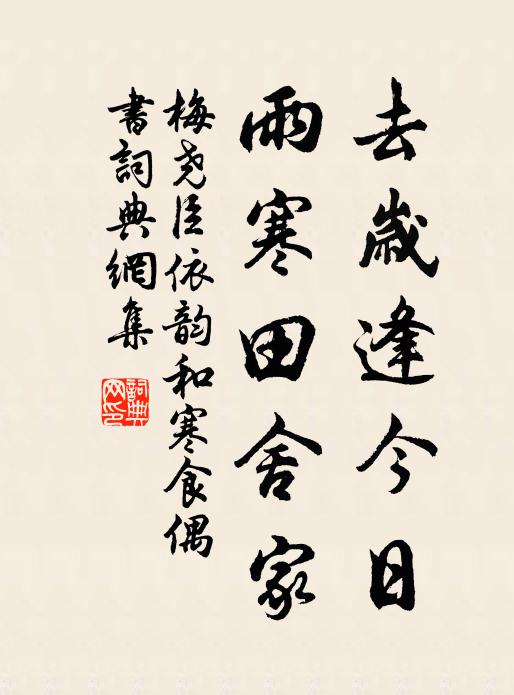 去歲逢今日
雨寒田舍家
梅堯臣依韵和寒食偶
書詞典網集
詞典
网印